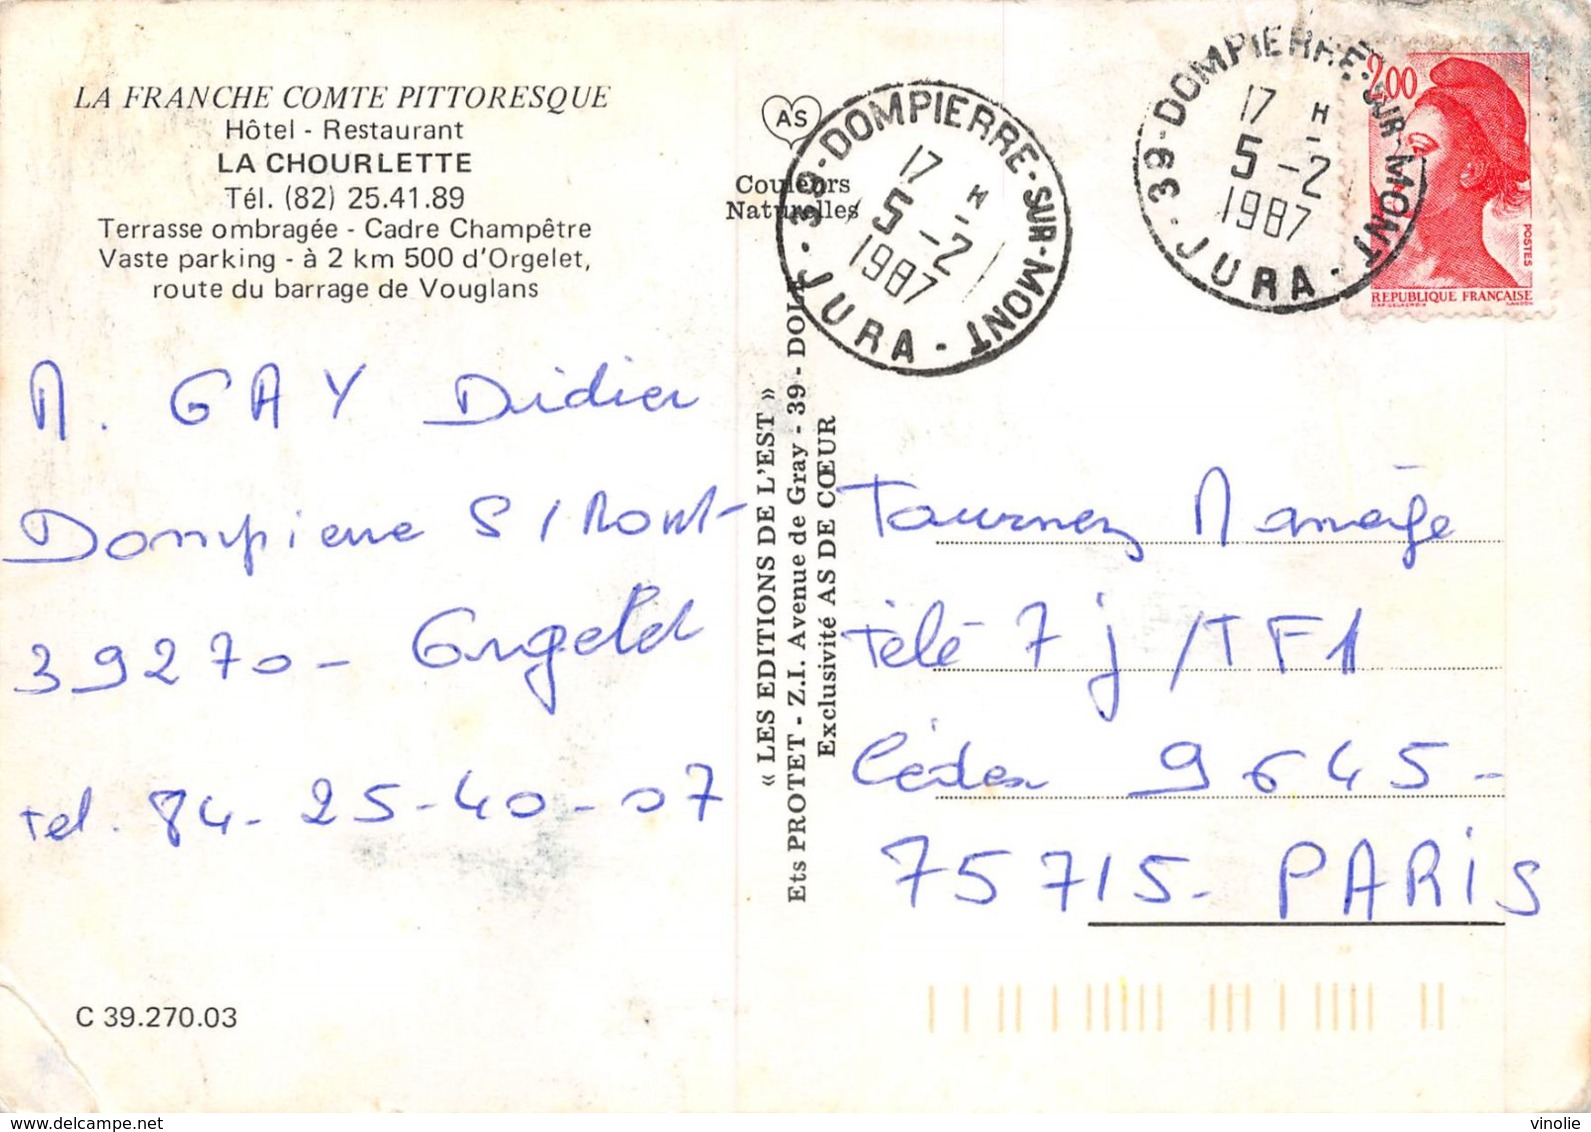 LA FRANCHE COMTE PITTORESQUE
Hôtel - Restaurant
LA CHOURLETTE
Tél. (82) 25.41.89
Terrasse ombragée - Cadre Champêtre
Vaste parking - à 2 km 500 d'Orgelet,
route du barrage de Vouglans
M. GAY Didier
Dompierre S/Mont
39270 - Orgelet
tel. 84-25-40-07
C 39.270.03
AS
Couleurs
Naturelles
« LES EDITIONS DE L'EST »
Ets PROTET - Z.I. Avenue de Gray - 39 - DOLE
Exclusivité AS DE CŒUR
39-DOMPIERRE-SUR-MONT
17 H
5-2
1987
JURA
39-DOMPIERRE-SUR-MONT
17 H
5-2
1987
JURA
2,00
POSTES
REPUBLIQUE FRANÇAISE
Tournez Manège
Télé 7 j /TF1
Cédex 9645-
75715- PARIS
vinolie